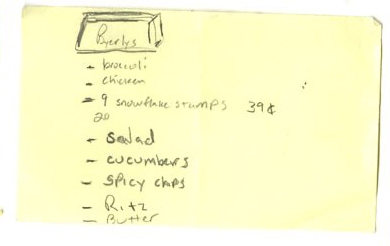 Byerlys
- broccoli
- chicken
- 9 snowflake stamps 39¢
20
- Salad
- cucumbers
- spicy chips
- Ritz
- Butter